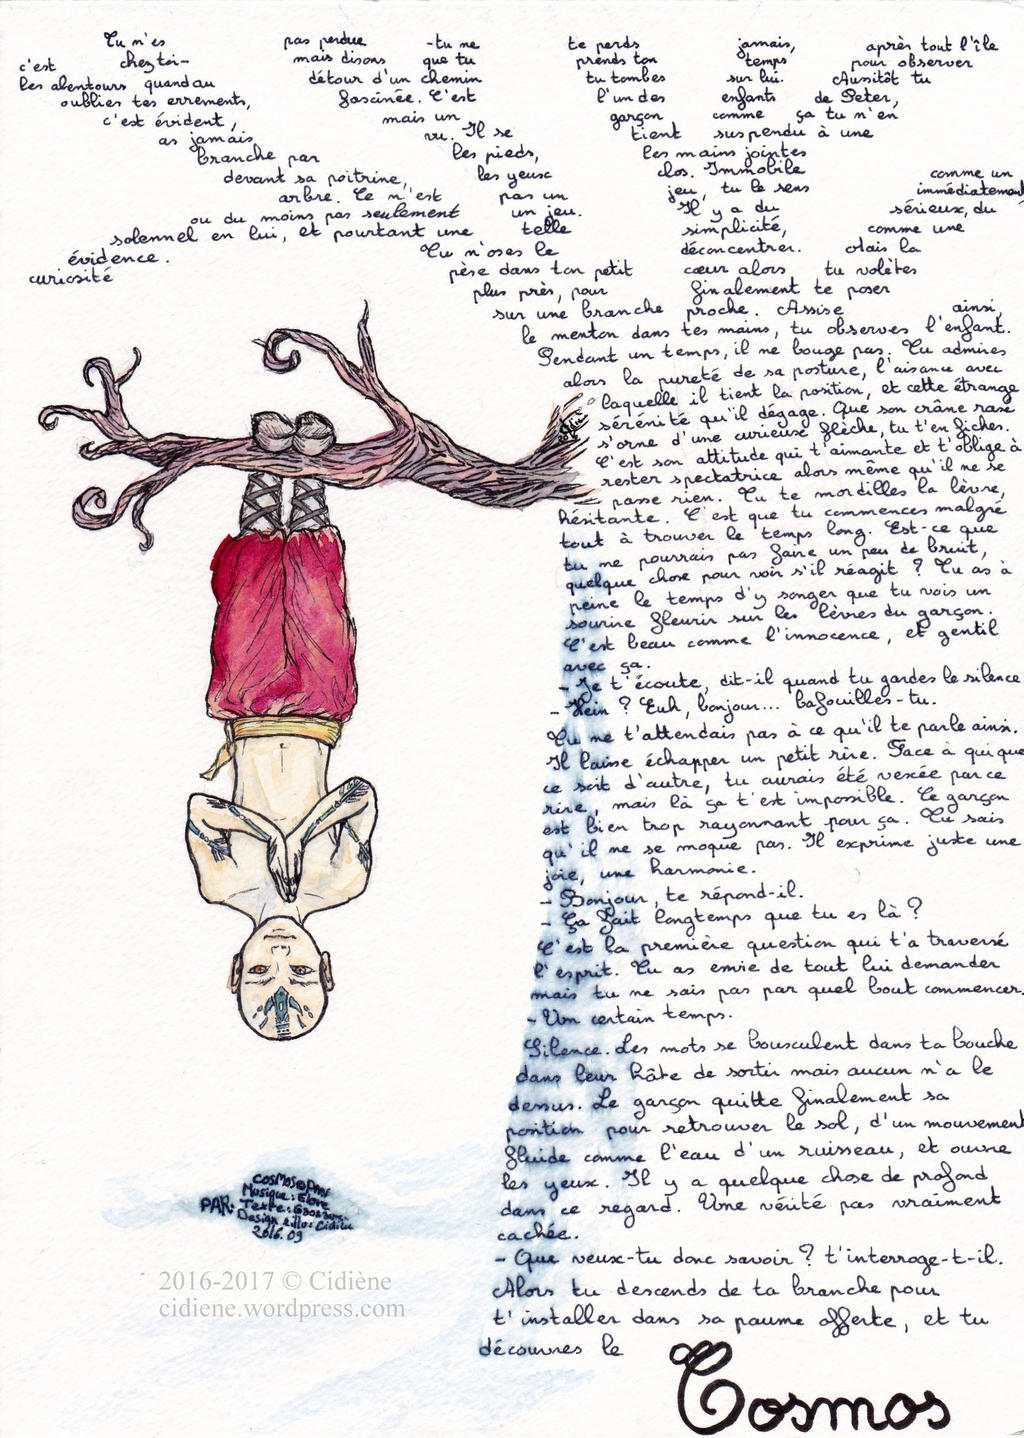 Tu n'es pas perdue -tu ne te perds jamais, après tout l'île
c'est chez toi- mais disons que tu prends ton temps pour observer
les alentours quand au détour d'un chemin tu tombes sur lui. Aussitôt tu
oublies tes errements, fascinée. C'est l'un des enfants de Peter,
c'est évident, mais un garçon comme ça tu n'en
as jamais vu. Il se tient suspendu à une
branche par les pieds, les mains jointes
devant sa poitrine, les yeux clos. Immobile comme un
arbre. Ce n'est pas un jeu, tu le sens immédiatement
ou du moins pas seulement un jeu. Il y a du sérieux, du
solennel en lui, et pourtant une telle simplicité, comme une
évidence. Tu n'oses le déconcentrer. Mais la
curiosité pèse dans ton petit cœur alors tu volètes
plus près, pour finalement te poser
sur une branche proche. Assise ainsi,
le menton dans tes mains, tu observes l'enfant.
Pendant un temps, il ne bouge pas. Tu admires
alors la pureté de sa posture, l'aisance avec
laquelle il tient la position, et cette étrange
sérénité qu'il dégage. Que son crâne rasé
s'orne d'une curieuse flèche, tu t'en fiches.
C'est son attitude qui t'aimante et t'oblige à
rester spectatrice alors même qu'il ne se
passe rien. Tu te mordilles la lèvre,
hésitante. C'est que tu commences malgré
tout à trouver le temps long. Est-ce que
tu ne pourrais pas faire un peu de bruit,
quelque chose pour voir s'il réagit ? Tu as à
peine le temps d'y songer que tu vois un
sourire fleurir sur les lèvres du garçon.
C'est beau comme l'innocence, et gentil
avec ça.
- Je t'écoute, dit-il quand tu gardes le silence
- Hein ? Euh, bonjour... bafouilles-tu.
Tu ne t'attendais pas à ce qu'il te parle ainsi.
Il laisse échapper un petit rire. Face à qui que
ce soit d'autre, tu aurais été vexée par ce
rire, mais là ça t'est impossible. Ce garçon
est bien trop rayonnant pour ça. Tu sais
qu'il ne se moque pas. Il exprime juste une
joie, une harmonie.
- Bonjour, te répond-il.
- Ça fait longtemps que tu es là ?
C'est la première question qui t'a traversé
l'esprit. Tu as envie de tout lui demander
mais tu ne sais pas par quel bout commencer.
- Un certain temps.
Silence. Les mots se bousculent dans ta bouche
dans leur hâte de sortir mais aucun n'a le
dessus. Le garçon quitte finalement sa
position pour retrouver le sol, d'un mouvement
fluide comme l'eau d'un ruisseau, et ouvre
les yeux. Il y a quelque chose de profond
dans ce regard. Une vérité pas vraiment
cachée.
- Que veux-tu donc savoir ? t'interroge-t-il.
Alors tu descends de ta branche pour
t'installer dans sa paume offerte, et tu
découvres le
Cosmos
Musique: 
PAR: Texte: 
Design illu: Cidiène
2016.09
2016-2017 © Cidiène
cidiene.wordpress.com